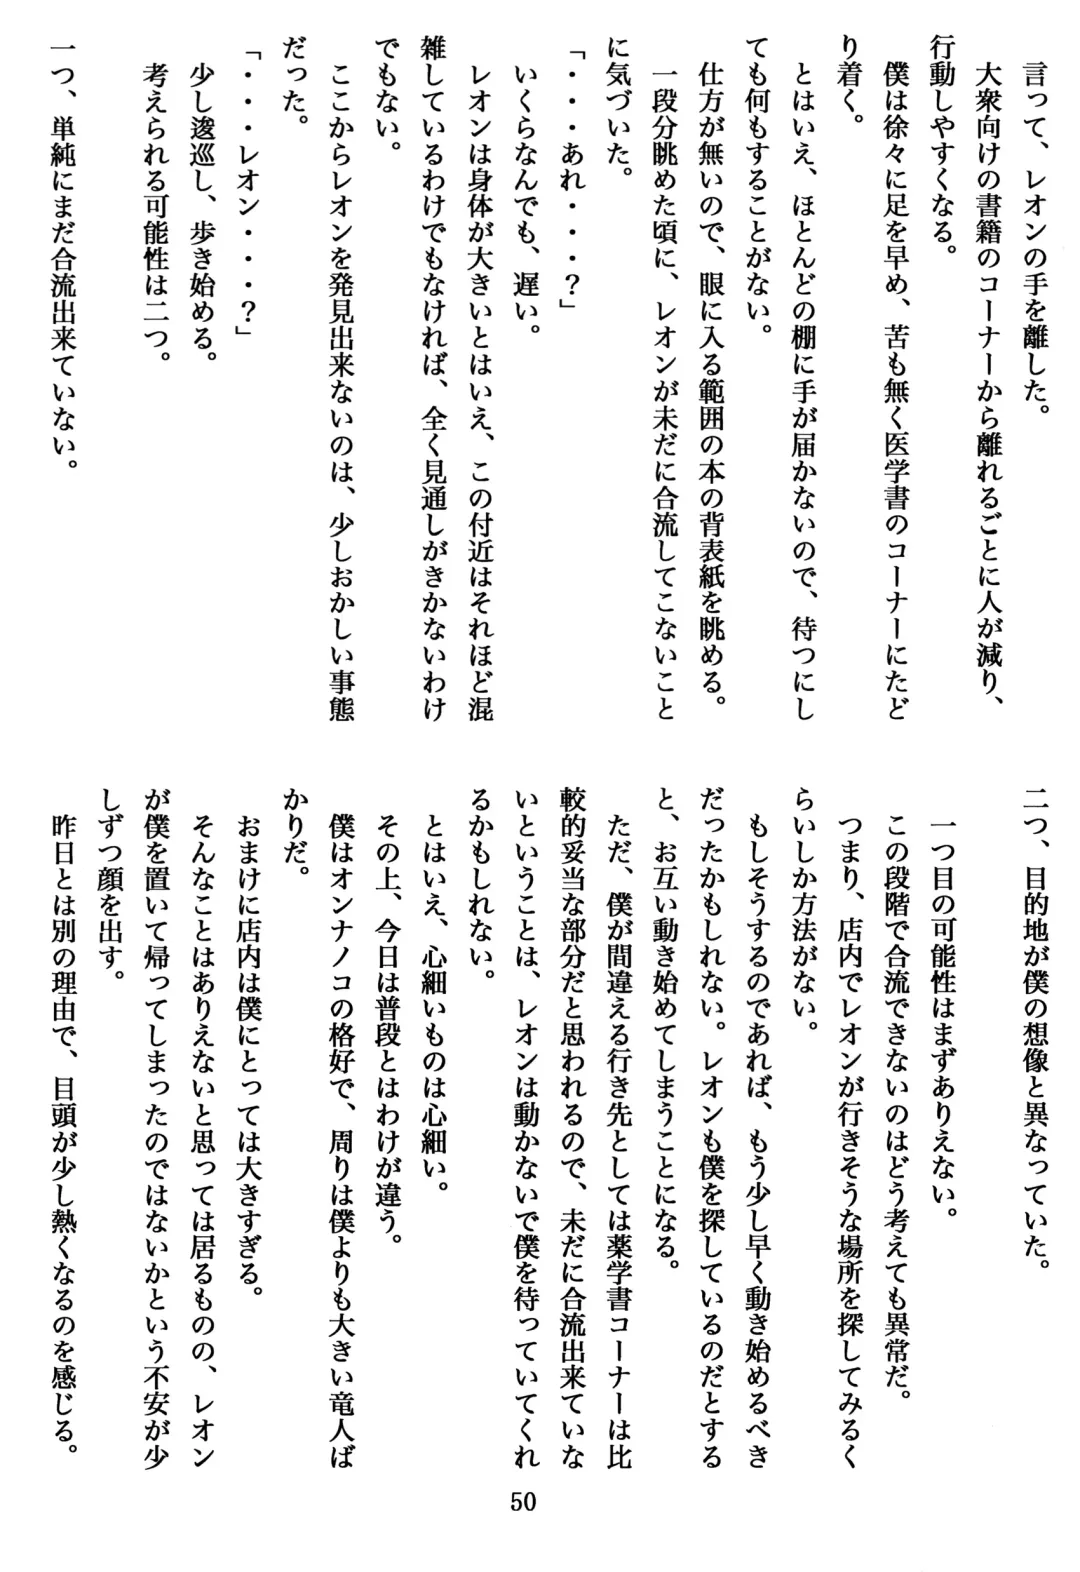 言って、レオンの手を離した。
　大衆向けの書籍のコーナーから離れるごとに人が減り、
行動しやすくなる。
　僕は徐々に足を早め、苦も無く医学書のコーナーにたど
り着く。
　とはいえ、ほとんどの棚に手が届かないので、待つにし
ても何もすることがない。
　仕方が無いので、眼に入る範囲の本の背表紙を眺める。
　一段分眺めた頃に、レオンが未だに合流してこないこと
に気づいた。
「・・・あれ・・・？」
　いくらなんでも、遅い。
　レオンは身体が大きいとはいえ、この付近はそれほど混
雑しているわけでもなければ、全く見通しがきかないわけ
でもない。
　ここからレオンを発見出来ないのは、少しおかしい事態
だった。
「・・・レオン・・・？」
　少し逡巡し、歩き始める。
　考えられる可能性は二つ。
一つ、単純にまだ合流出来ていない。
二つ、目的地が僕の想像と異なっていた。
　一つ目の可能性はまずありえない。
　この段階で合流できないのはどう考えても異常だ。
　つまり、店内でレオンが行きそうな場所を探してみるく
らいしか方法がない。
　もしそうするのであれば、もう少し早く動き始めるべき
だったかもしれない。レオンも僕を探しているのだとする
と、お互い動き始めてしまうことになる。
　ただ、僕が間違える行き先としては薬学書コーナーは比
較的妥当な部分だと思われるので、未だに合流出来ていな
いということは、レオンは動かないで僕を待っていてくれ
るかもしれない。
　とはいえ、心細いものは心細い。
　その上、今日は普段とはわけが違う。
　僕はオンナノコの格好で、周りは僕よりも大きい竜人ば
かりだ。
　おまけに店内は僕にとっては大きすぎる。
　そんなことはありえないと思っては居るものの、レオン
が僕を置いて帰ってしまったのではないかという不安が少
しずつ顔を出す。
　昨日とは別の理由で、目頭が少し熱くなるのを感じる。
50